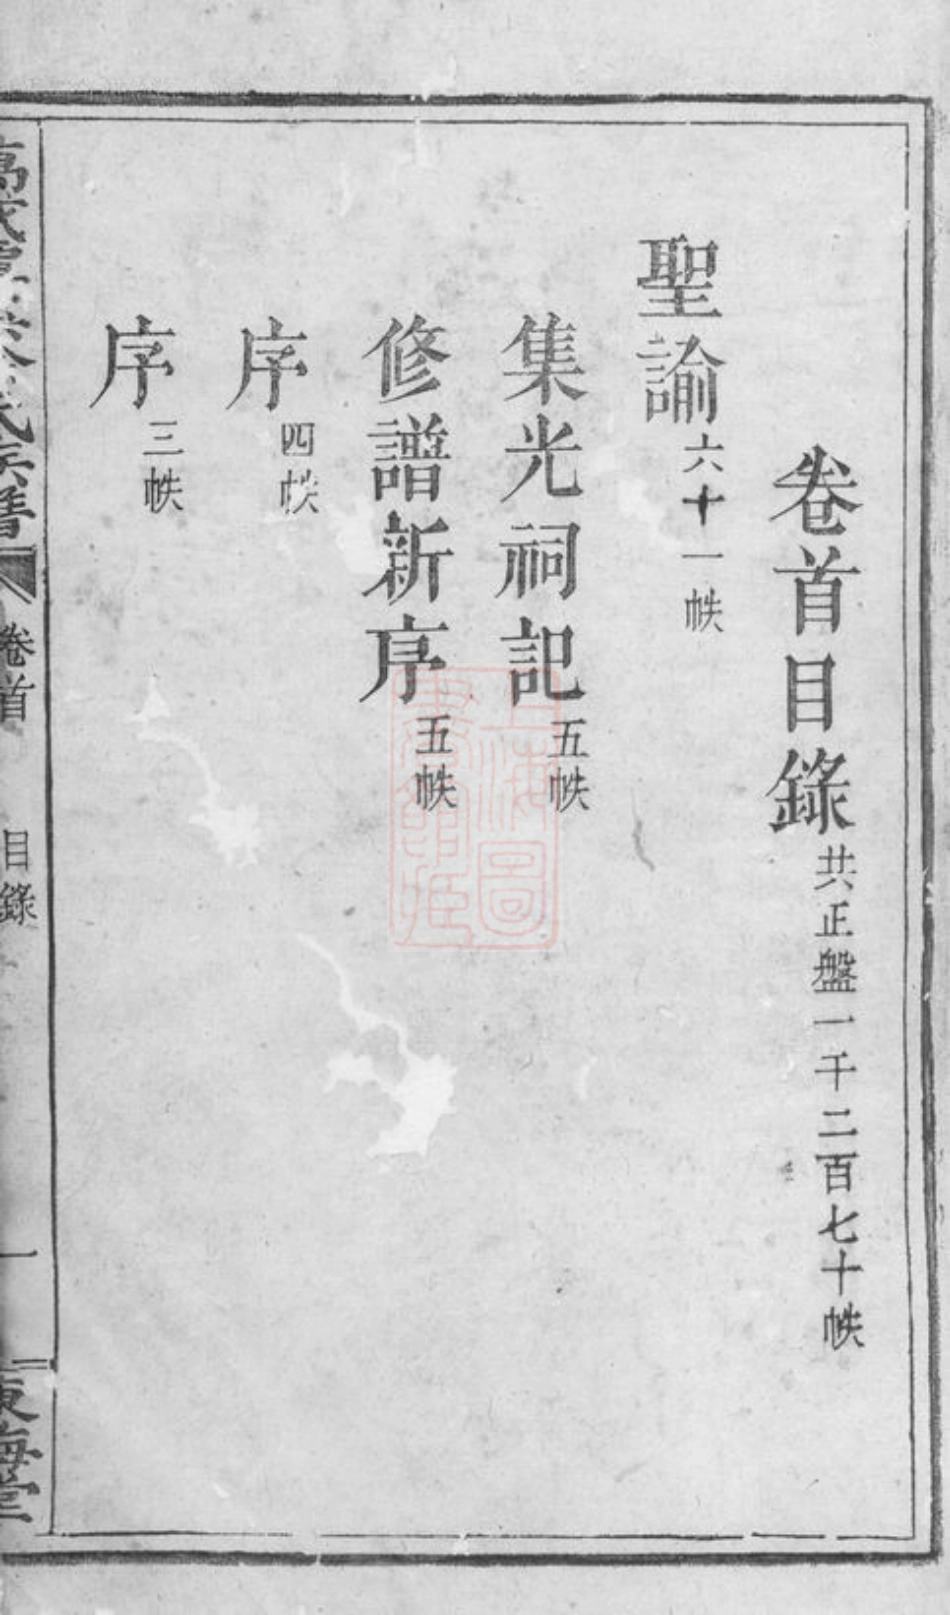 卷首目錄共正盤一千二百七十帙
聖諭六十一帙
集光祠記五帙
修譜新序五帙
序四帙
序三帙
氏族譜 卷首 目錄 一 東海堂
上海圖書館藏